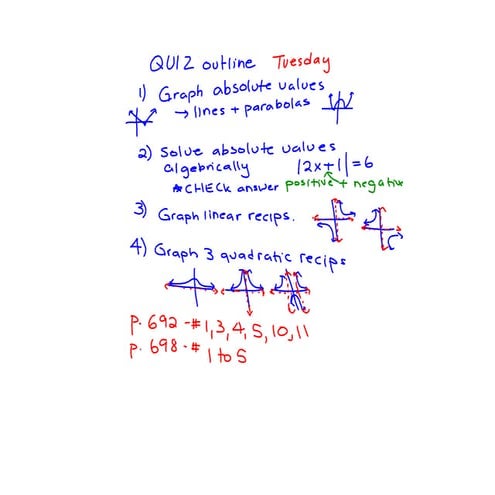 QUIZ outline Tuesday
1) Graph absolute values
→ lines + parabolas
2) Solve absolute values
algebrically |2x+1|=6
*CHECK answer positive + negative
3) Graph linear recips.
4) Graph 3 quadratic recips
p. 692 - # 1, 3, 4, 5, 10, 11
p. 698 - # 1 to 5